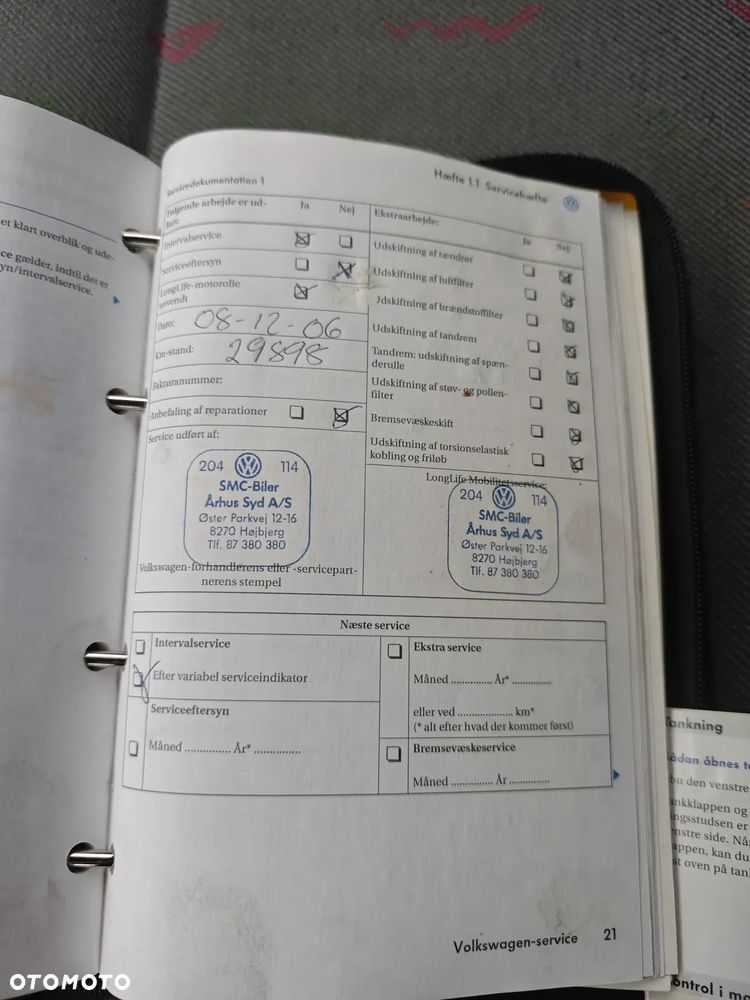 et klart overblik og ude-
ce gælder, indtil det er
yn/intervalservice.
Servicedokumentation 1
Hæfte 1.1 Servicehæfte
Følgende arbejde er ud-
ført:
Ja
Nej
Intervalservice
Serviceeftersyn
LongLife-motorolie
anvendt
Dato:
08-12-06
Km-stand:
29898
Fakturanummer:
Anbefaling af reparationer
Service udført af:
204 114
SMC-Biler
Århus Syd A/S
Øster Parkvej 12-16
8270 Højbjerg
Tlf. 87 380 380
Volkswagen-forhandlerens eller -servicepart-
nerens stempel
Ekstraarbejde:
Ja
Nej
Udskiftning af tændrør
Udskiftning af luftfilter
Udskiftning af brændstoffilter
Udskiftning af tandrem
Tandrem: udskiftning af spæn-
derulle
Udskiftning af støv- og pollen-
filter
Bremsevæskeskift
Udskiftning af torsionselastisk
kobling og friløb
LongLife Mobilitetsservice:
204 114
SMC-Biler
Århus Syd A/S
Øster Parkvej 12-16
8270 Højbjerg
Tlf. 87 380 380
Næste service
Intervalservice
Efter variabel serviceindikator
Serviceeftersyn
Måned ............... År* ...............
Ekstra service
Måned ............... År* ...............
eller ved .................... km*
(* alt efter hvad der kommer først)
Bremsevæskeservice
Måned ............... År ...............
Volkswagen-service 21
Tankning
ådan åbnes
bn den venstre
ankklappen og
ngsstudsen er
nstre side. Nå
appen, kan du
st oven på tan
ontrol i mo
OTOMOTO